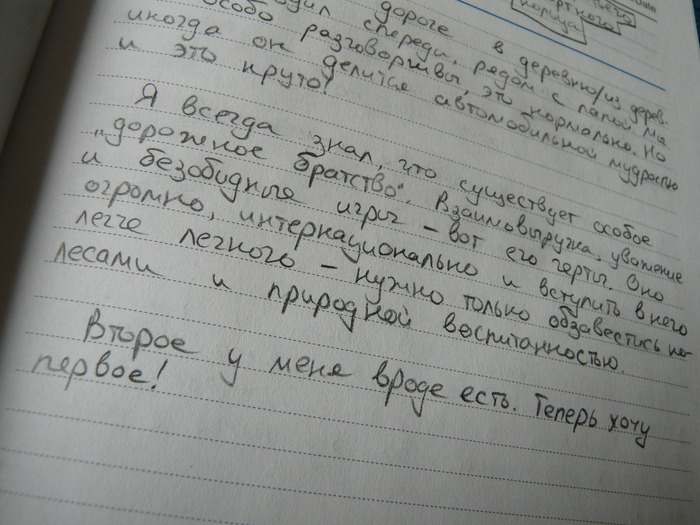 кольца
дороге в деревню/из дерев.
спереди, рядом с папой. Мы
особо разговорчивы, это нормально. Но
иногда он делится автомобильной мудростью
и это круто!
Я всегда знал, что существует особое
"дорожное братство". Взаимовыручка, уважение
и безобидные игры - вот его черты. Оно
огромно, интернационально и вступить в него
легче легкого - нужно только обзавестись ко-
лесами и природной воспитанностью.
Второе у меня вроде есть. Теперь хочу
первое!